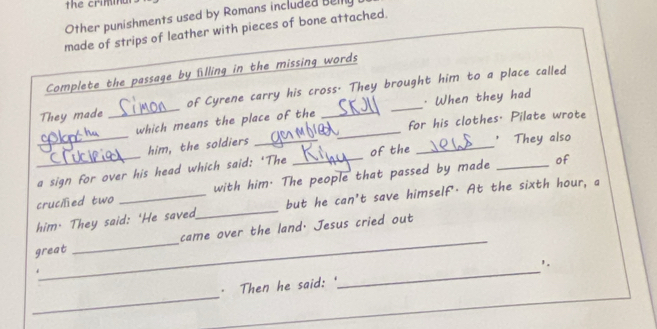 the criminal
Other punishments used by Romans included being
made of strips of leather with pieces of bone attached.
Complete the passage by filling in the missing words
They made Simon of Cyrene carry his cross. They brought him to a place called
golgotha which means the place of the SKJll. When they had
crucified him, the soldiers gembled for his clothes. Pilate wrote
a sign for over his head which said: 'The King of the Jews.' They also
crucified two ________ with him. The people that passed by made ________ of
him. They said: 'He saved ________ but he can't save himself'. At the sixth hour, a
great ________ came over the land. Jesus cried out
'________
________. Then he said: '________'.